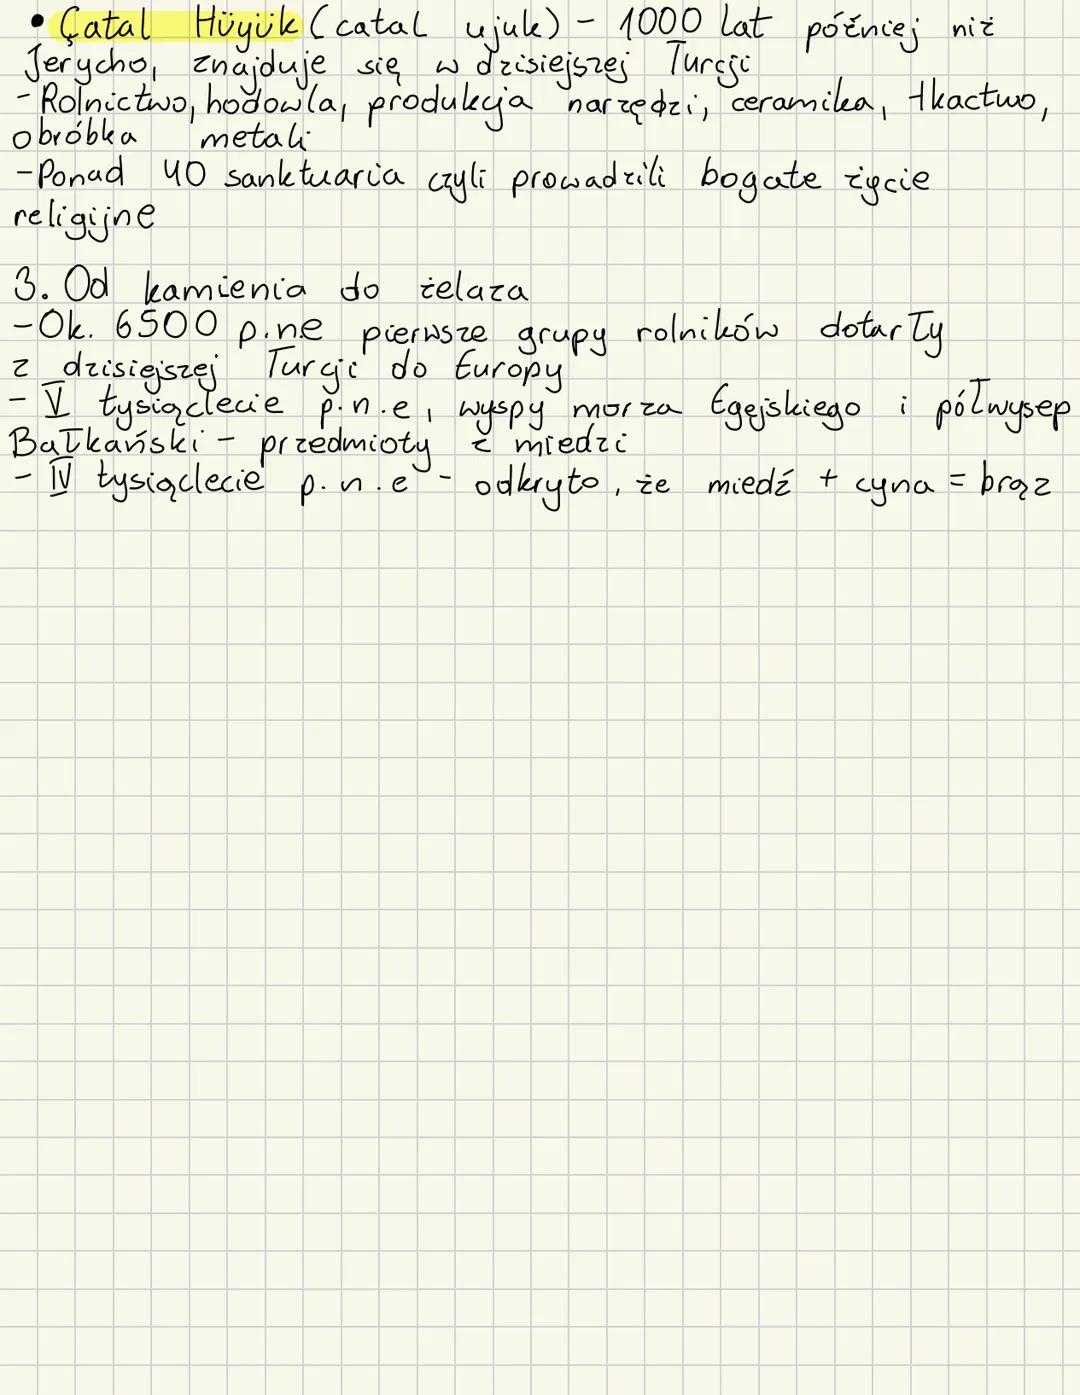 • Çatal Hüyük (catal ujuk) - 1000 lat później niż
Jerycho, znajduje się w dzisiejszej Turcji
- Rolnictwo, hodowla, produkcja narzędzi, ceramika, tkactwo,
obróbka metali
- Ponad 40 sanktuaria czyli prowadzili bogate życie
religijne
3. Od kamienia do żelaza
- Ok. 6500 p.n.e pierwsze grupy rolników dotarły
z dzisiejszej Turcji do Europy
- V tysiąclecie p.n.e, wyspy morza Egejskiego i półwysep
Bałkański - przedmioty z miedzi
- IV tysiąclecie p.n.e - odkryto, że miedź + cyna = brąz